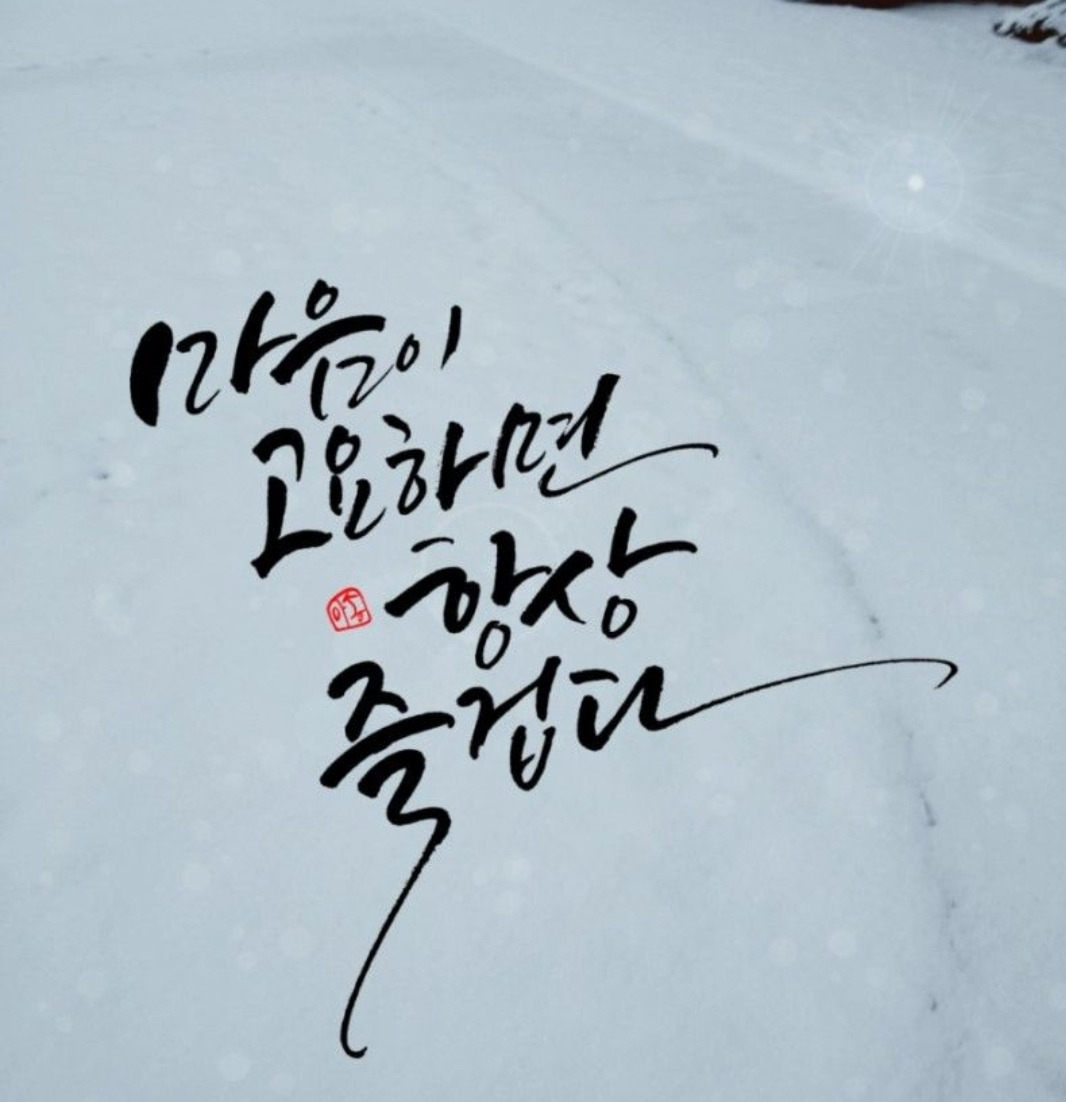 마음이
고요하면
항상
즐겁다